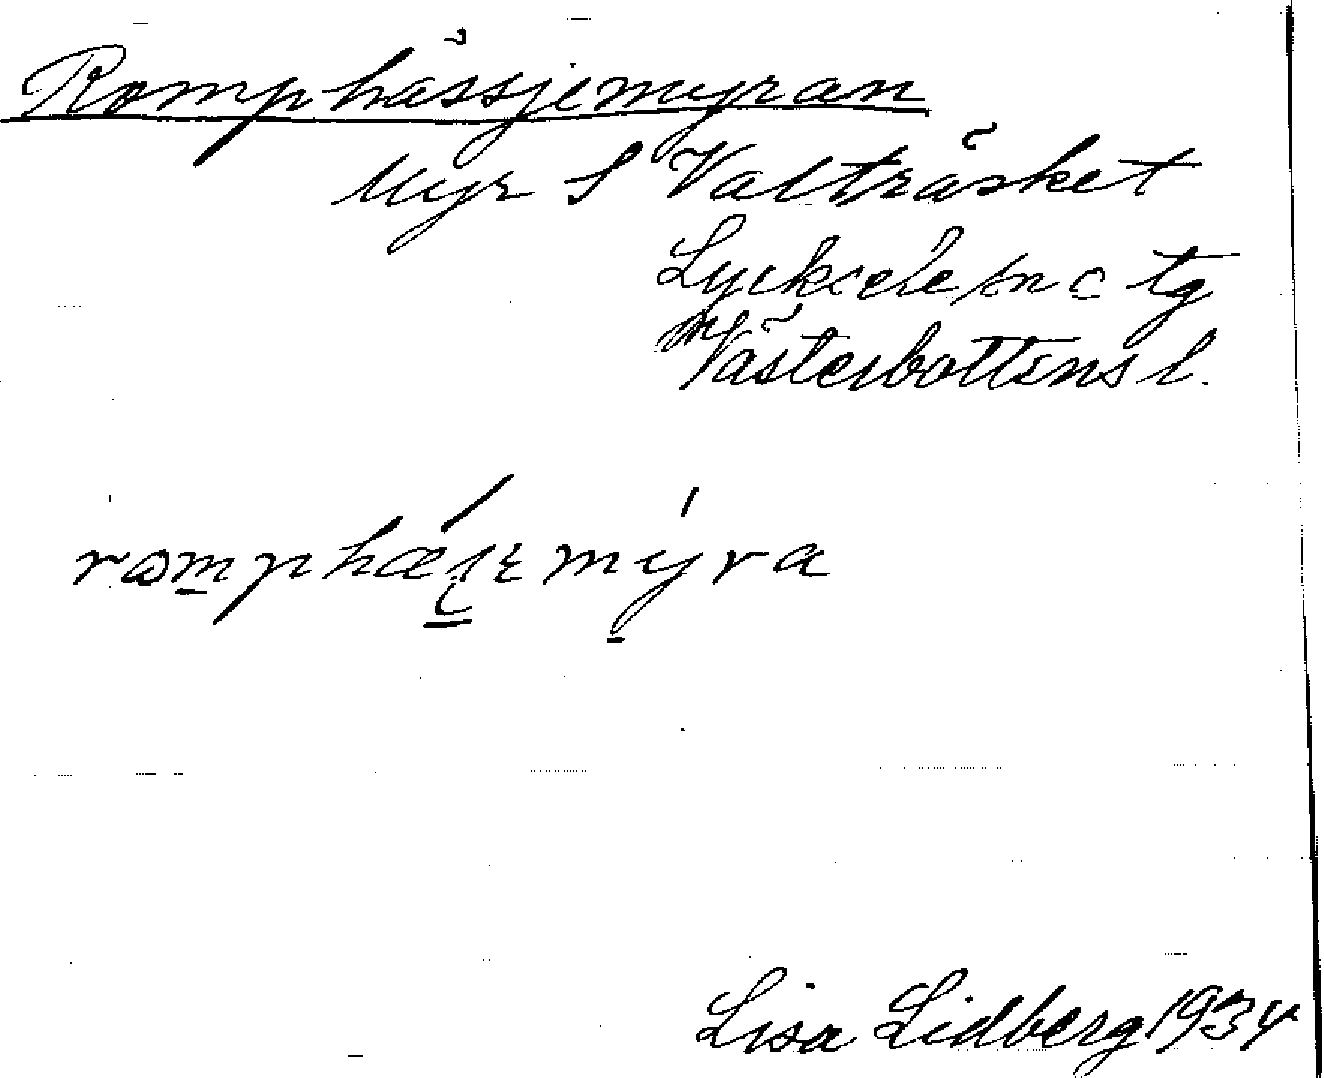 Romphässjemyran
Myr S Valträsket
Lycksele sn o tg
Västerbottens l.
myra
Lisa Lidberg 1934